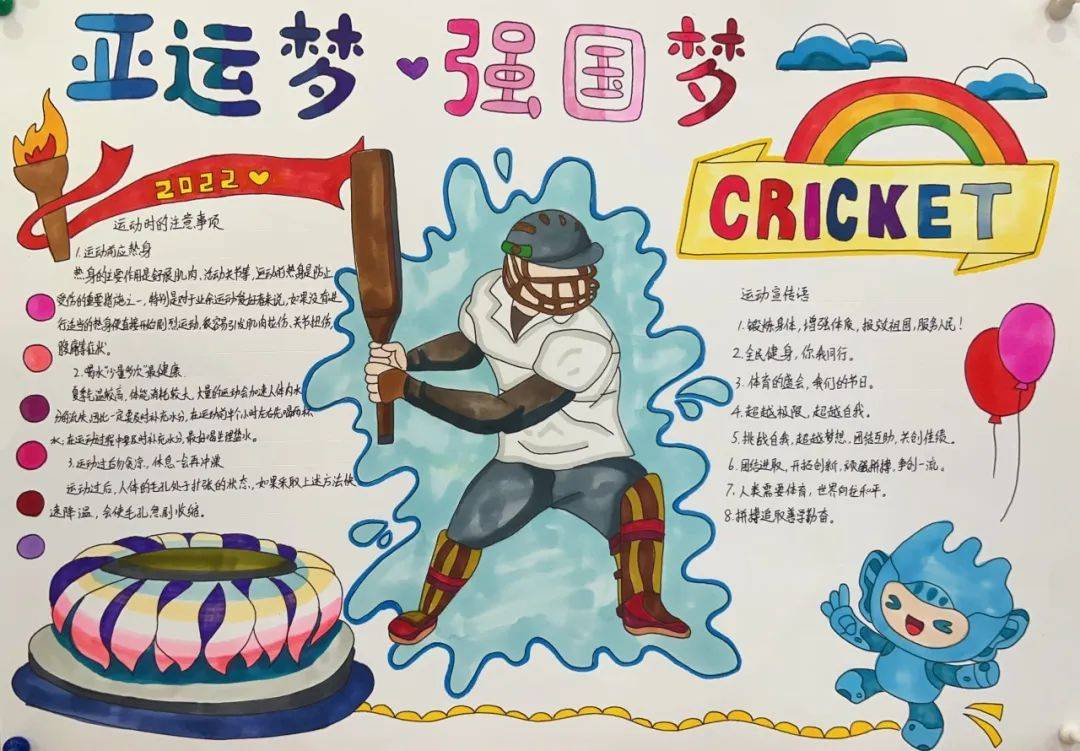 亚运梦·强国梦
2022
CRICKET
运动时的注意事项
1.运动前应热身
热身的主要作用是舒展肌肉、活动关节等,运动前热身是防止
受伤的重要措施之一,特别是对于业余运动爱好者来说,如果没有进
行适当的热身便直接开始剧烈运动,很容易引发肌肉拉伤、关节扭伤
等症状。
2.喝水"少量多次"最健康
夏季气温较高,体能消耗较大,大量的运动会加速人体内水
分的流失,因此一定要及时补充水分,在运动前半个小时左右先喝
水,在运动过程中要及时补充水分,最好喝生理盐水。
3.运动过后勿贪凉,休息一会再冲澡
运动过后,人体的毛孔处于扩张的状态,如果采取上述方法快
速降温,会使毛孔急剧收缩。
运动宣传语
1.锻炼身体,增强体质,报效祖国,服务人民!
2.全民健身,你我同行。
3.体育的盛会,我们的节日。
4.超越极限,超越自我。
5.挑战自我,超越梦想,团结互助,共创佳绩。
6.团结进取,开拓创新,顽强拼搏,争创一流。
7.人类需要体育,世界向往和平。
8.拼搏进取善学勤奋。